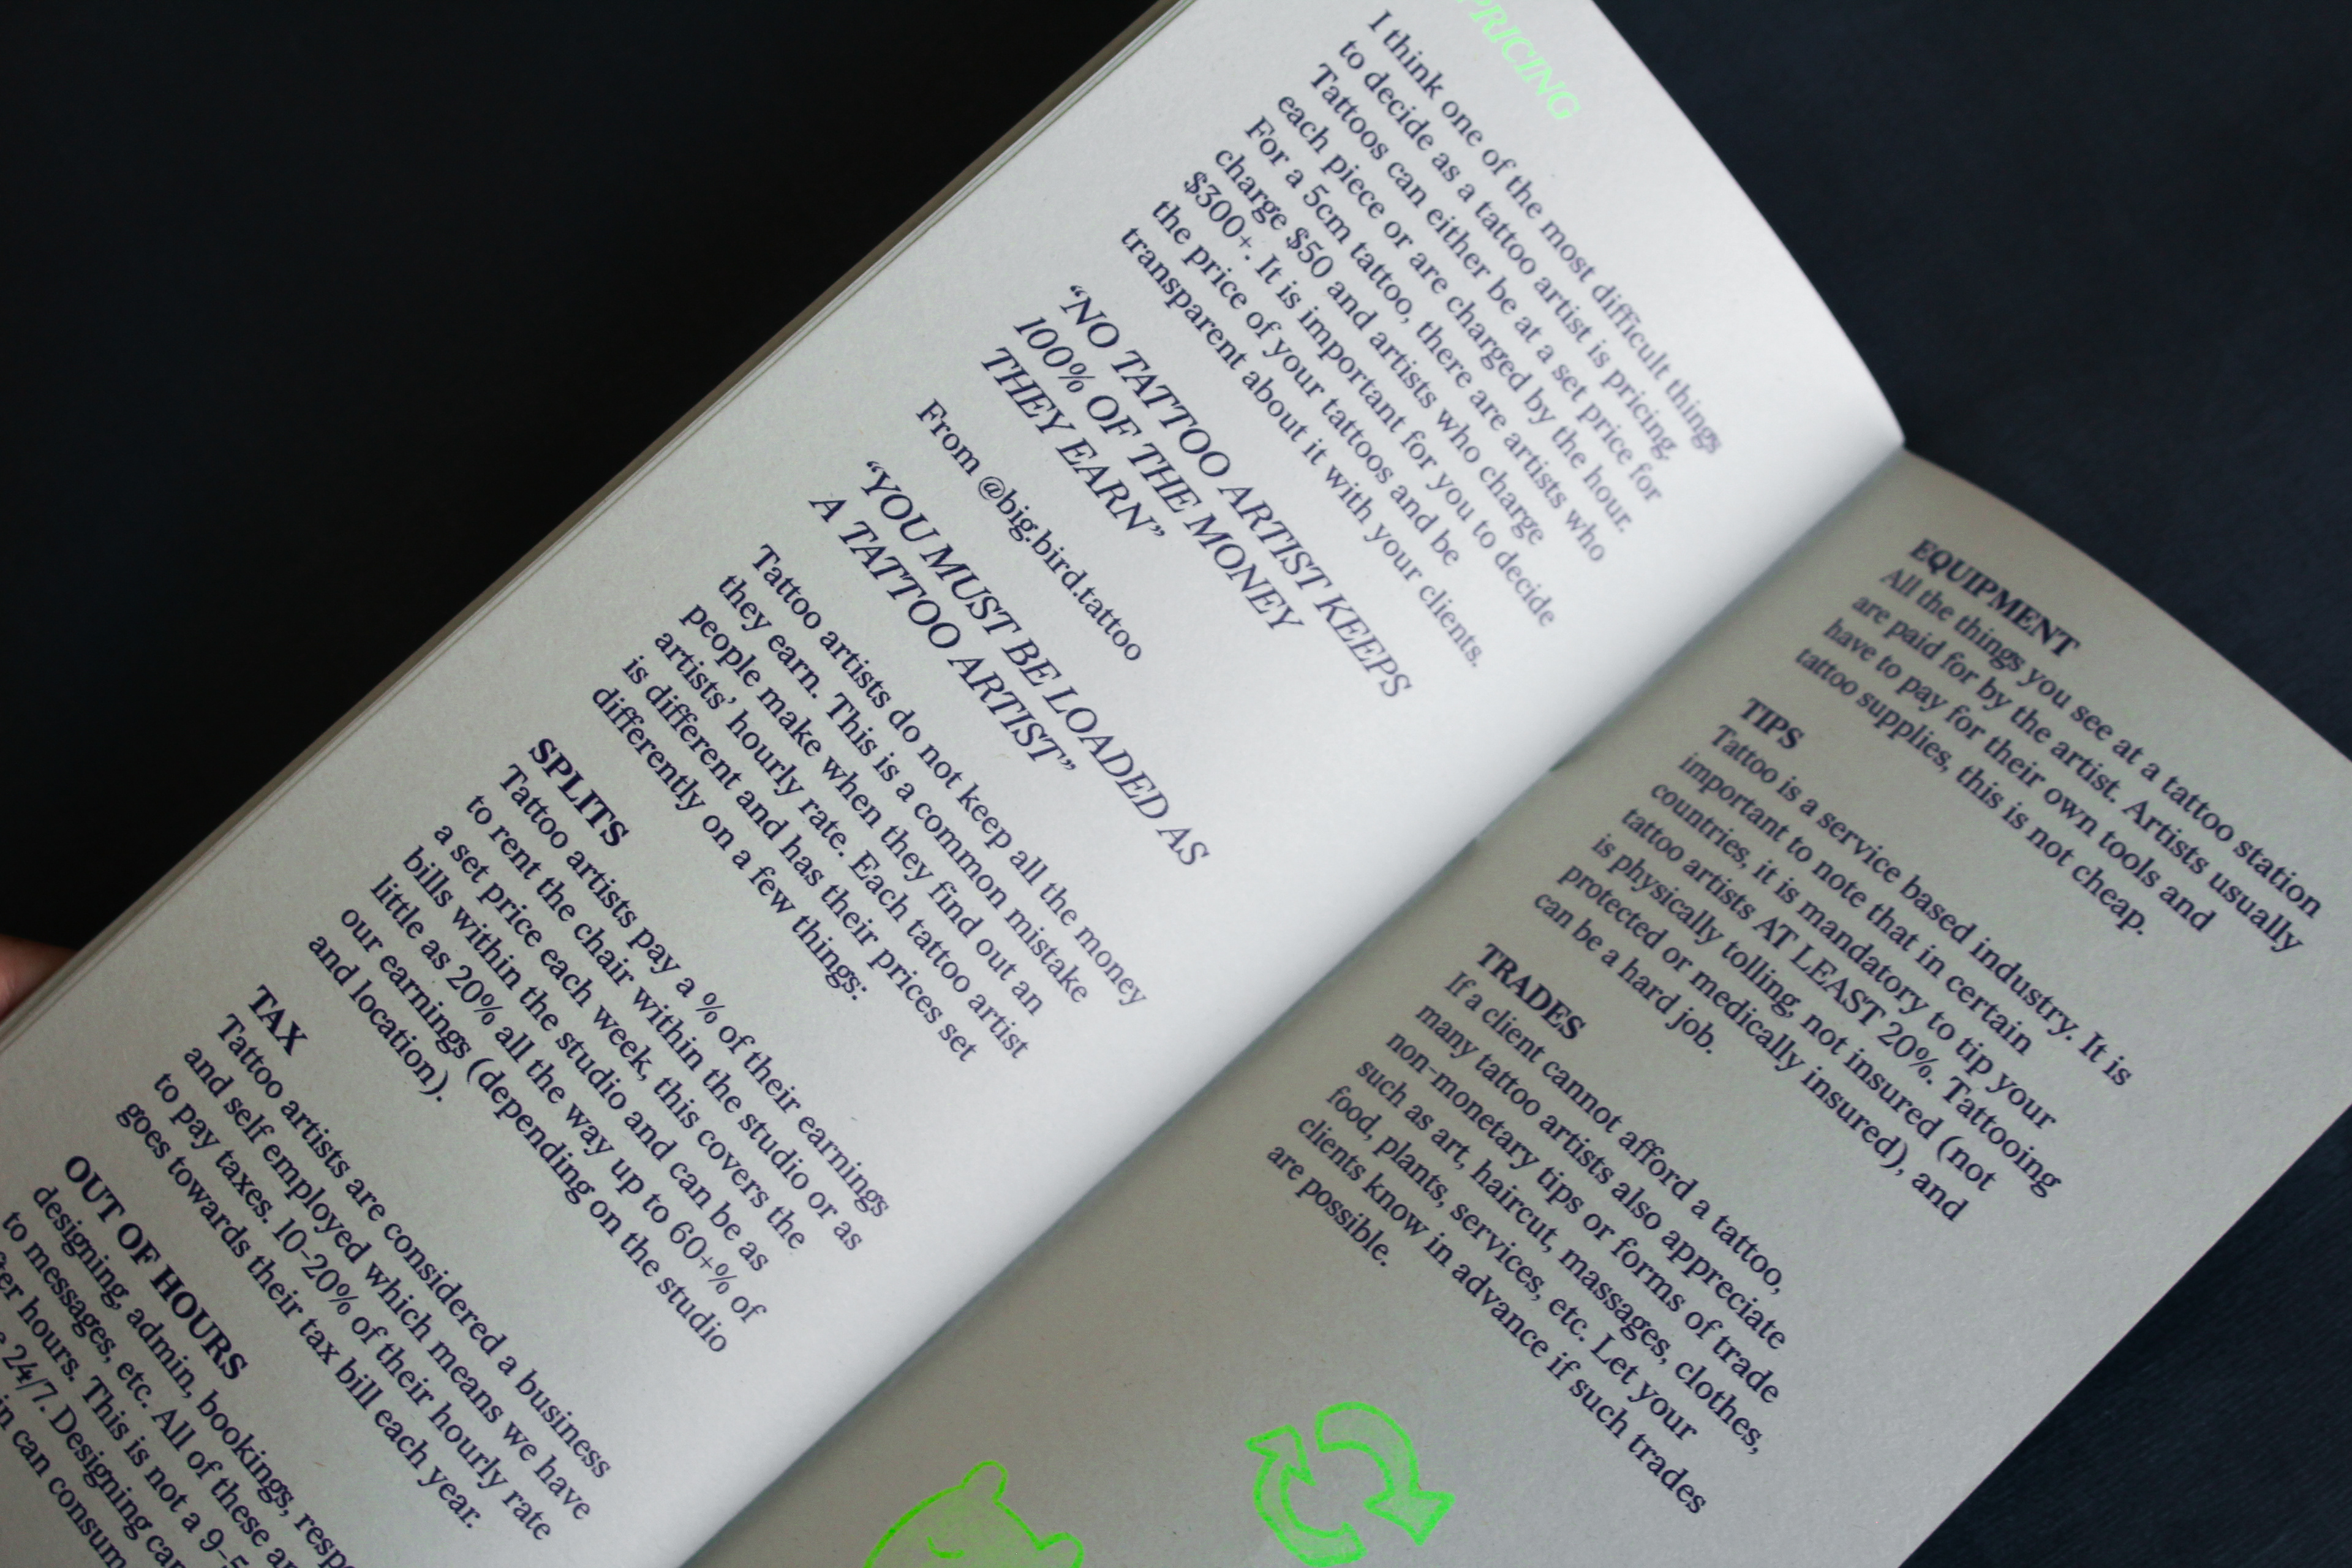 PRICING
I think one of the most difficult things
to decide as a tattoo artist is pricing.
Tattoos can either be at a set price for
each piece or are charged by the hour.
For a 5cm tattoo, there are artists who
charge $50 and artists who charge
$300+. It is important for you to decide
the price of your tattoos and be
transparent about it with your clients.
“NO TATTOO ARTIST KEEPS
100% OF THE MONEY
THEY EARN”
From @big.bird.tattoo
“YOU MUST BE LOADED AS
A TATTOO ARTIST”
Tattoo artists do not keep all the money
they earn. This is a common mistake
people make when they find out an
artists’ hourly rate. Each tattoo artist
is different and has their prices set
differently on a few things:
SPLITS
Tattoo artists pay a % of their earnings
to rent the chair within the studio or as
a set price each week, this covers the
bills within the studio and can be as
little as 20% all the way up to 60+% of
our earnings (depending on the studio
and location).
TAX
Tattoo artists are considered a business
and self employed which means we have
to pay taxes. 10-20% of their hourly rate
goes towards their tax bill each year.
OUT OF HOURS
designing, admin, bookings,
to messages, etc. All of these
hours. This is not a 9-5
24/7. Designing
can
EQUIPMENT
All the things you see at a tattoo station
are paid for by the artist. Artists usually
have to pay for their own tools and
tattoo supplies, this is not cheap.
TIPS
Tattoo is a service based industry. It is
important to note that in certain
countries, it is mandatory to tip your
tattoo artists AT LEAST 20%. Tattooing
is physically tolling, not insured (not
protected or medically insured), and
can be a hard job.
TRADES
If a client cannot afford a tattoo,
many tattoo artists also appreciate
non-monetary tips or forms of trade
such as art, haircut, massages, clothes,
food, plants, services, etc. Let your
clients know in advance if such trades
are possible.